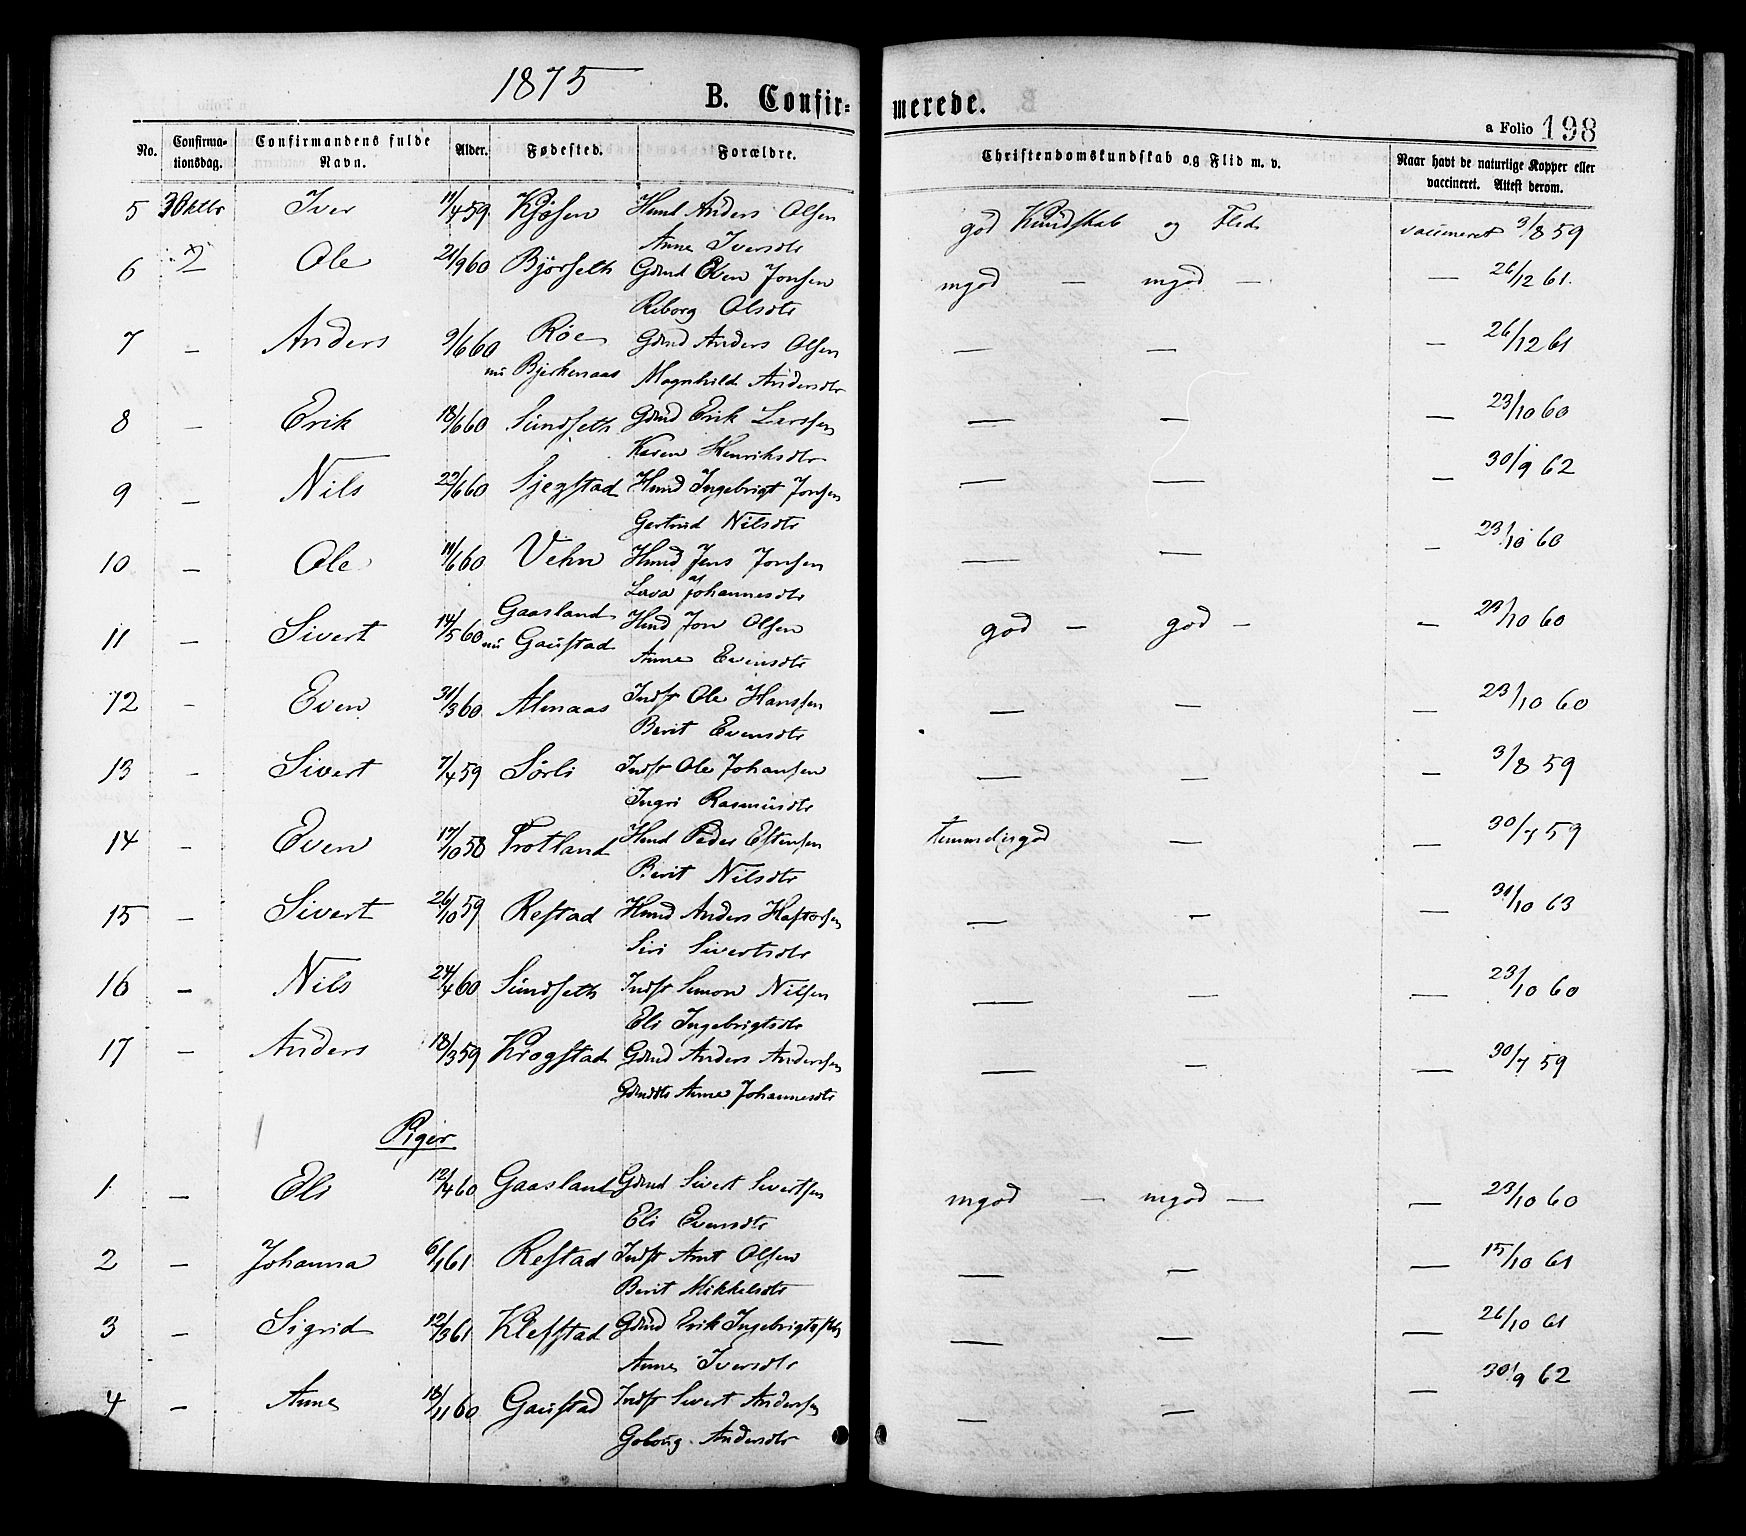 1875
B. Confir-merede.
a Folio 198
No. Confirma-tionsdag. Confirmandens fulde Navn. Alder. Fødested. Forældre. Christendomskundskab og Flid m. v. Naar havt de naturlige Kopper eller vaccineret. Attest derom.
5 3 Oktbr Iver 11/4 59 Kjøsen Hmd Anders Olsen god Kundskab og Flid vaccineret 3/8 59
Anne Iversdtr
6 Ole 21/9 60 Bjørseth Gdmd Even Jonsen mgod — mgod — — 26/12 61.
Reborg Olsdtr
7 — Anders 9/6 60 Røe Gdmd Anders Olsen — — — 26/12 61
nu Bjerkenaas Magnhild Andersdtr
8 — Erik 18/6 60 Sundseth Gdmd Erik Larssen — — — 23/10 60
Karen Henriksdtr
9 — Nils 22/6 60 Hmd Ingebrigt Jonsen — — — 30/9 62
Gertrud Nilsdtr
10 — Ole 11/6 60 Vehn Hmd Jens Jonsen — — — 23/10 60
Johannesdtr
11 — Sivert 14/5 60 Gaasland Hmd Jon Olsen god — god — — 23/10 60
nu Gaustad Anne Evensdtr
12 — Even 31/3 60 Almaas Indst Ole Hanssen — — — 23/10 60
Berit Evensdtr
13 — Sivert 7/4 59 Sørli Indst Ole Johansen — — — 3/8 59
Ingri Rasmusdtr
14 — Even 17/10 58 Trotland Hmd Peder Estensen temmeligod — — 30/7 59
Berit Nilsdtr
15 — Sivert 26/10 59 Restad Hmd Anders Haftorsen — — — 31/10 63
Siri Sivertsdtr
16 — Nils 24/4 60 Sundseth Indst Simon Nilsen — — — 23/10 60
Eli Ingebrigtsdtr
17 — Anders 18/3 59 Krogstad Gdmd Anders Anderssen — — — 30/7 59
Gdmdtr Anne Johannesdtr
Piger
1 — Eli 12/4 60 Gaasland Gdmd Sivert Sivertsen mgod — mgod — — 23/10 60
Eli Evensdtr
2 — Johanna 6/1 61 Restad Indst Arnt Olsen — — — 15/10 61
Berit Mikkelsdtr
3 — Sigrid 12/3 61 Klefstad Gdmd Erik Ingebrigtsen — — — 26/10 61
Anne Iversdtr
4 — Anne 18/11 60 Gaustad Indst Sivert Anderssen — — — 30/9 62
Goborg Andersdtr